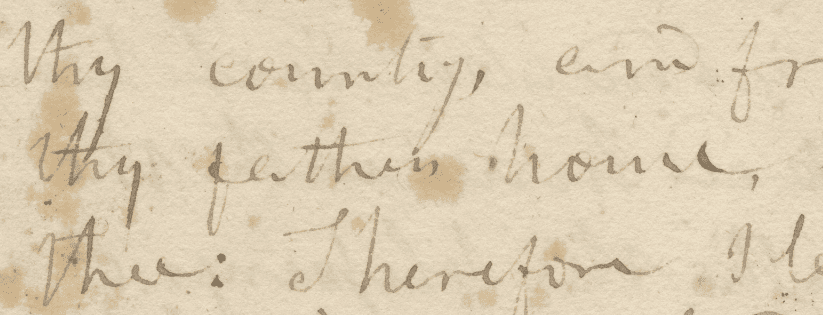 thy county, and fr
thy fathers house,
thee: Therefore I le